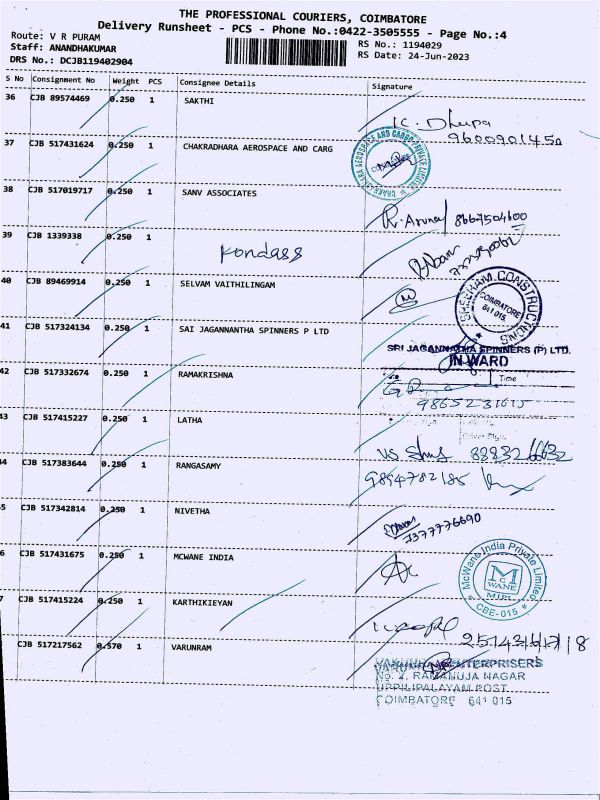 THE PROFESSIONAL COURIERS, COIMBATORE
Delivery Runsheet - PCS - Phone No.:0422-3505555 - Page No.:4
Route: V R PURAM
Staff: ANANDHAKUMAR
DRS No.: DCJB119402904
RS No.: 1194029
RS Date: 24-Jun-2023
S No Consignment No Weight PCS Consignee Details Signature
36 CJB 89574469 0.250 1 SAKTHI
K. Dhupa
9600901450
37 CJB 517431624 0.250 1 CHAKRADHARA AEROSPACE AND CARG
CHAKRADHARA AEROSPACE AND CARGO PRIVATE LIMITED
38 CJB 517019717 0.250 1 SANV ASSOCIATES
R. Arunal 8667504600
39 CJB 1339338 0.250 1 Kondass
40 CJB 89469914 0.250 1 SELVAM VAITHILINGAM
SREERAM CONSTRUCTIONS
COIMBATORE
641 015.
41 CJB 517324134 0.250 1 SAI JAGANNANTHA SPINNERS P LTD
SRI JAGANNATHA SPINNERS (P) LTD.
INWARD
Time
42 CJB 517332674 0.250 1 RAMAKRISHNA
9865231615
43 CJB 517415227 0.250 1 LATHA
8883266632
44 CJB 517383644 0.250 1 RANGASAMY
9894782185
45 CJB 517342814 0.250 1 NIVETHA
7377776690
46 CJB 517431675 0.250 1 MCWANE INDIA
McWane India Private Limited
MCWANE
MIPL
CBE-015
47 CJB 517415224 0.250 1 KARTHIKIEYAN
CJB 517217562 0.570 1 VARUNRAM
VARUNRAM ENTERPRISERS
No. 2, RAMANUJA NAGAR
UPPILIPALAYAM POST
COIMBATORE 641 015